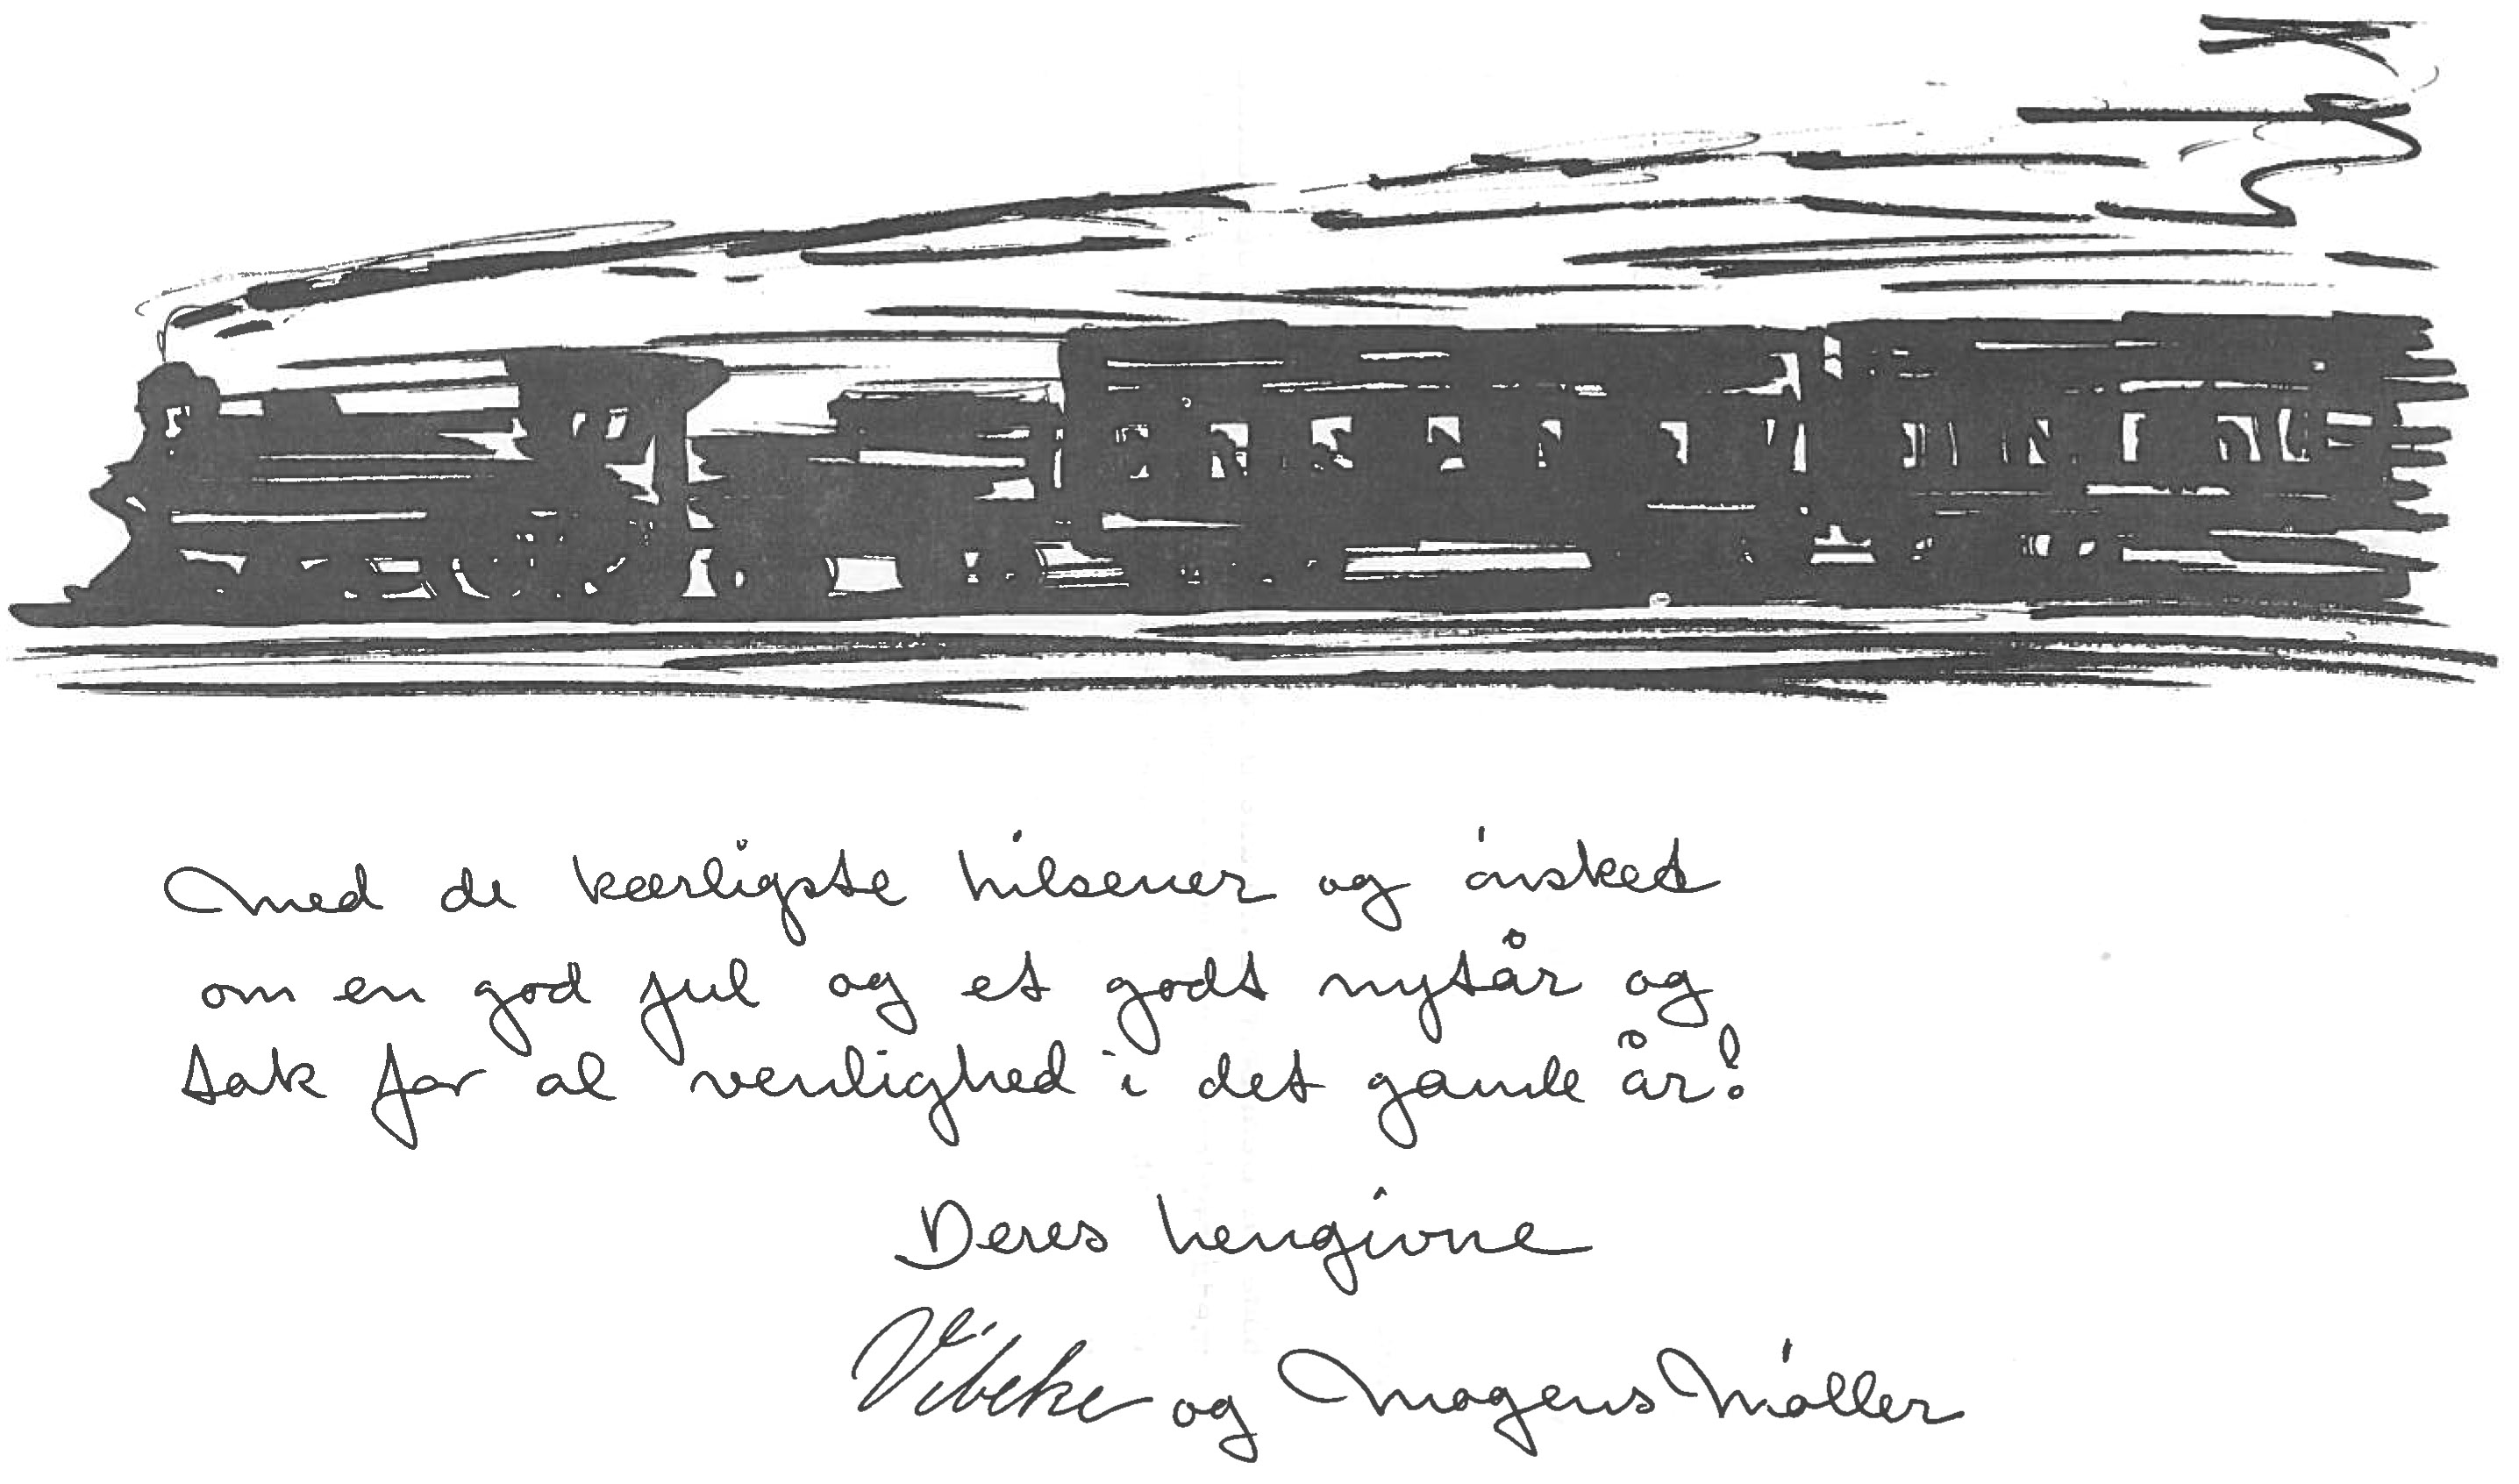 Med de kærligste hilsener og ónsket
om en god jul og et godt nytår og
tak for al venlighed i det gamle år!
Deres hengivne
Vibeke og Mogens Móller